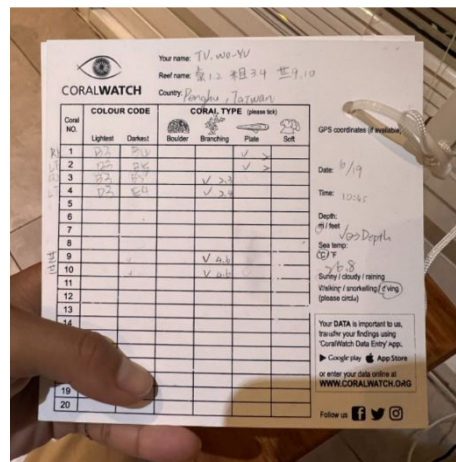 Your name: TU. WO-YU
Reef name: 1.2 粗3.4 9.10
Country: Penghu, Taiwan
CORALWATCH
Coral NO.
COLOUR CODE
CORAL TYPE (please tick)
Lightest Darkest Boulder Branching Plate Soft
1
2
3 ✓
4 ✓
5
6
7
8
9 ✓ 4.6
10 ✓ 4.6
11
12
13
14
19
20
GPS coordinates (if available)
Date: 6/19
Time:
Depth:
m / feet
Depth
Sea temp:
°C / °F
26.8
Sunny / cloudy / raining
Walking / snorkelling / diving
(please circle)
Your DATA is important to us,
transfer your findings using
'CoralWatch Data Entry' App.
Google play App Store
or enter your data online at
WWW.CORALWATCH.ORG
Follow us